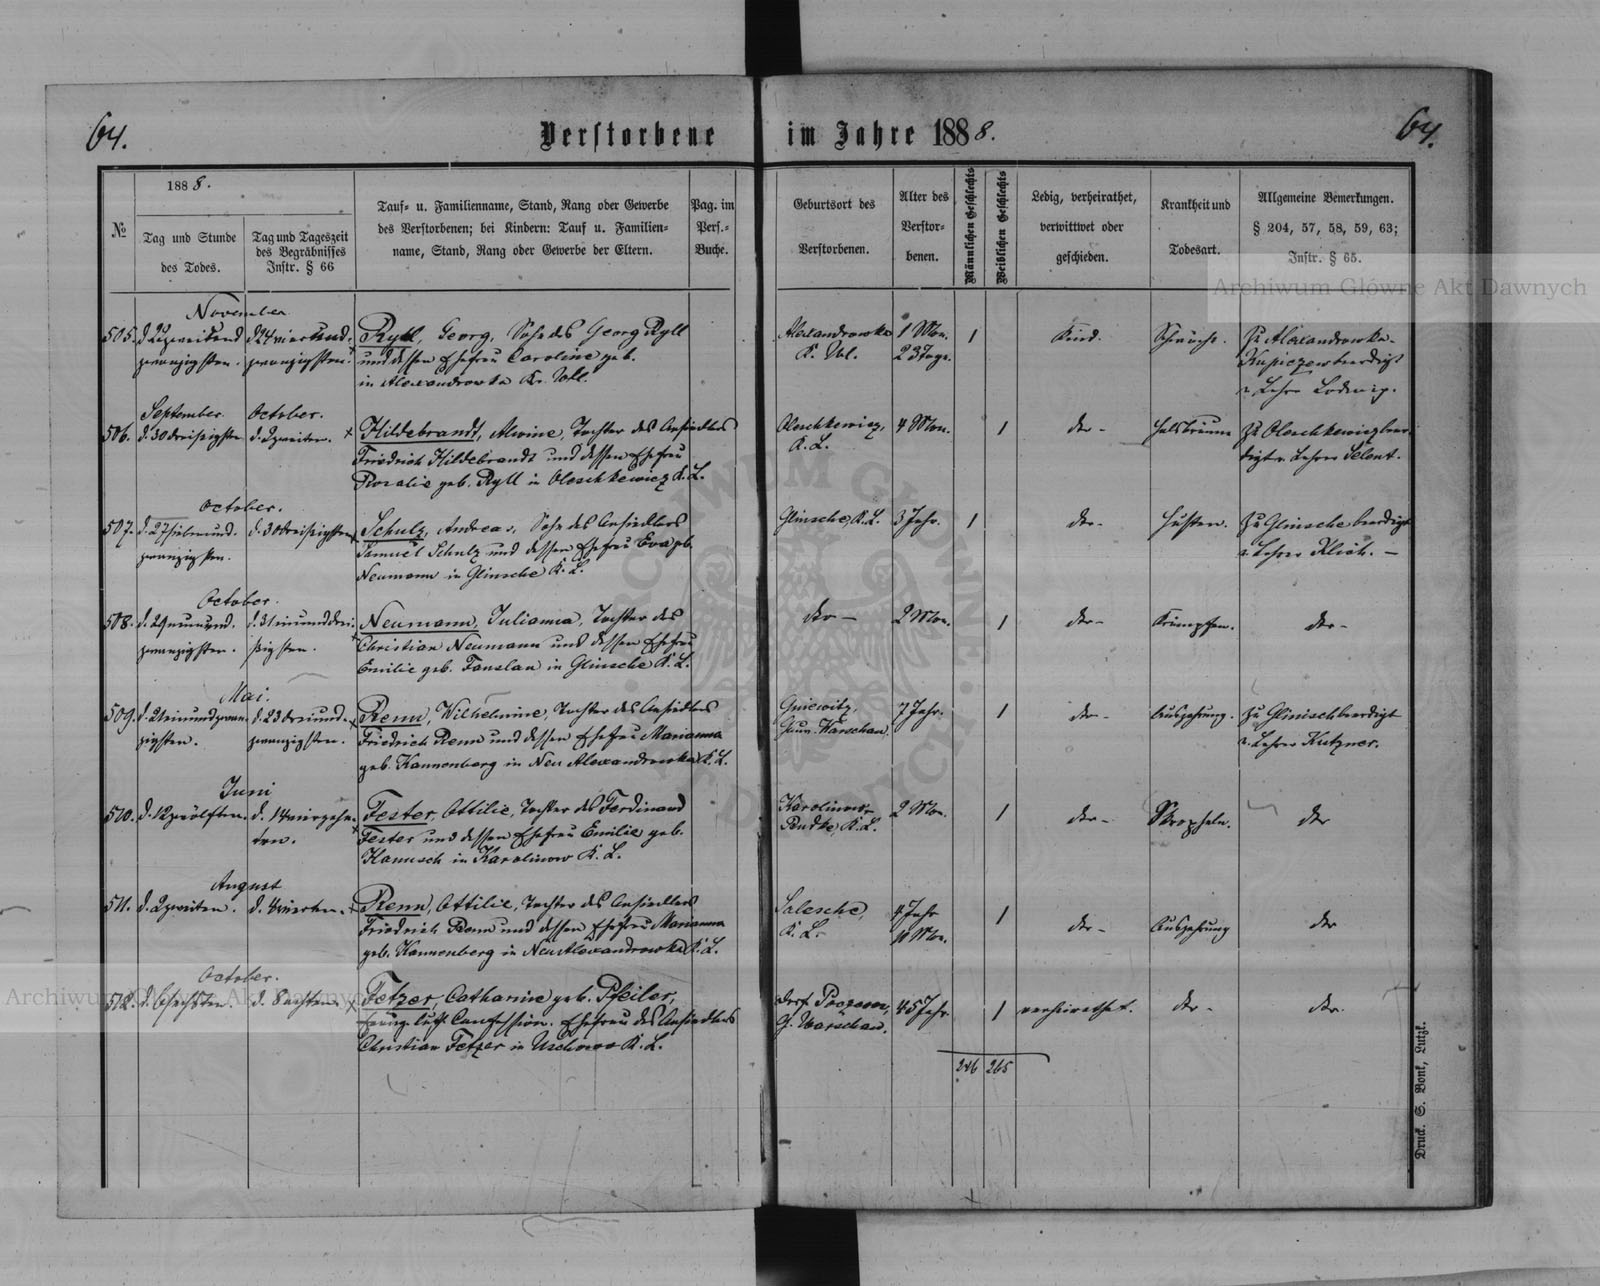 64.
Verstorbene im Jahre 1888.
64.
№
1888.
Tag und Stunde
des Todes.
Tag und Tageszeit
des Begräbnisses
Instr. § 66
Tauf- u. Familienname, Stand, Rang oder Gewerbe
des Verstorbenen; bei Kindern: Tauf u. Familien-
name, Stand, Rang oder Gewerbe der Eltern.
Pag. im
Pers.-
Buche.
Geburtsort des
Verstorbenen.
Alter des
Verstor-
benen.
Männlichen Geschlechts
Weiblichen Geschlechts
Ledig, verheirathet,
verwittwet oder
geschieden.
Krankheit und
Todesart.
Allgemeine Bemerkungen.
§ 204, 57, 58, 59, 63;
Instr. § 65.
November
505. d. 22 zweiund
zwanzigsten.
d. 24 vierund-
zwanzigsten.
Ryll, Georg, Sohn des Georg Ryll
und dessen Ehefrau Caroline geb.
in Alexandrowka Kr. Wl.
Alexandrowka
K. Wl.
1 Mon.
23 Tage.
1
Kind.
Zu Alexandrowka-
Kupiczew beerdigt
v. Lehrer Ludwig.
September.
October.
506. d. 30 dreißigsten
d. 2 zweiten.
Hildebrandt, Alwine, Tochter des Ansiedlers
Friedrich Hildebrandt und dessen Ehefrau
Rosalie geb. Ryll in Oleschkewicz K. L.
Oleschkewicz,
K. L.
4 Mon.
1
do-
Halsbräune
Zu Oleschkewicz beer-
digt v. Lehrer Selent.
October.
507. d. 27 siebenund.
zwanzigsten.
d. 30 dreißigsten
Schulz, Andreas, Sohn des Ansiedlers
Samuel Schulz und dessen Ehefrau Eva geb.
Neumann in Glinsche K. L.
Glinsche, K. L.
3 Jahr.
1
do-
Husten.
Zu Glinsche beerdigt
v. Lehrer Klich. -
October.
508. d. 29 neunund.
zwanzigsten.
d. 31 einunddrei-
ßigsten.
Neumann, Julianna, Tochter des
Christian Neumann und dessen Ehefrau
Emilie geb. Fanslau in Glinsche K. L.
do-
2 Mon.
1
do-
Krämpfen.
do-
Mai.
509. d. 21 einundzwan-
zigsten.
d. 23 dreiund-
zwanzigsten.
Renn, Wilhelmine, Tochter des Ansiedlers
Friedrich Renn und dessen Ehefrau Marianna
geb. Kannenberg in Neu Alexandrowka K. L.
Gniewitz,
Gouv. Warschau.
7 Jahr.
1
do-
Auszehrung.
Zu Glinisch beerdigt
v. Lehrer Kutzner.
Juni
510. d. 12 zwölften.
d. 14 vierzehn-
ten.
Fester, Ottilie, Tochter des Ferdinand
Fester und dessen Ehefrau Emilie geb.
Hanusch in Karolinow K. L.
Karolinow-
K. L.
2 Mon.
1
do-
Skropheln.
do
August
511. d. 2 zweiten.
d. 4 vierten.
Renn, Ottilie, Tochter des Ansiedlers
Friedrich Renn und dessen Ehefrau Marianna
geb. Kannenberg in Neu Alexandrowka K. L.
Salesche,
K. L.
4 Jahr
Mon.
1
do-
Auszehrung
do
October.
512. d. 6 sechsten.
d. 8 achten.
Fetzer, Catharine geb. Pfeiler,
evang. luth. Confession. Ehefrau des Ansiedlers
Christian Fetzer in K. L.
Dorf
G. Warschau.
45 Jahr
1
verheirathet.
do-
do.
246 265
Druck. S. Bonk, Lutzk.
Archiwum Główne Akt Dawnych
Archiwum Główne Akt Dawnych
ARCHIWUM GŁÓWNE AKT DAWNYCH